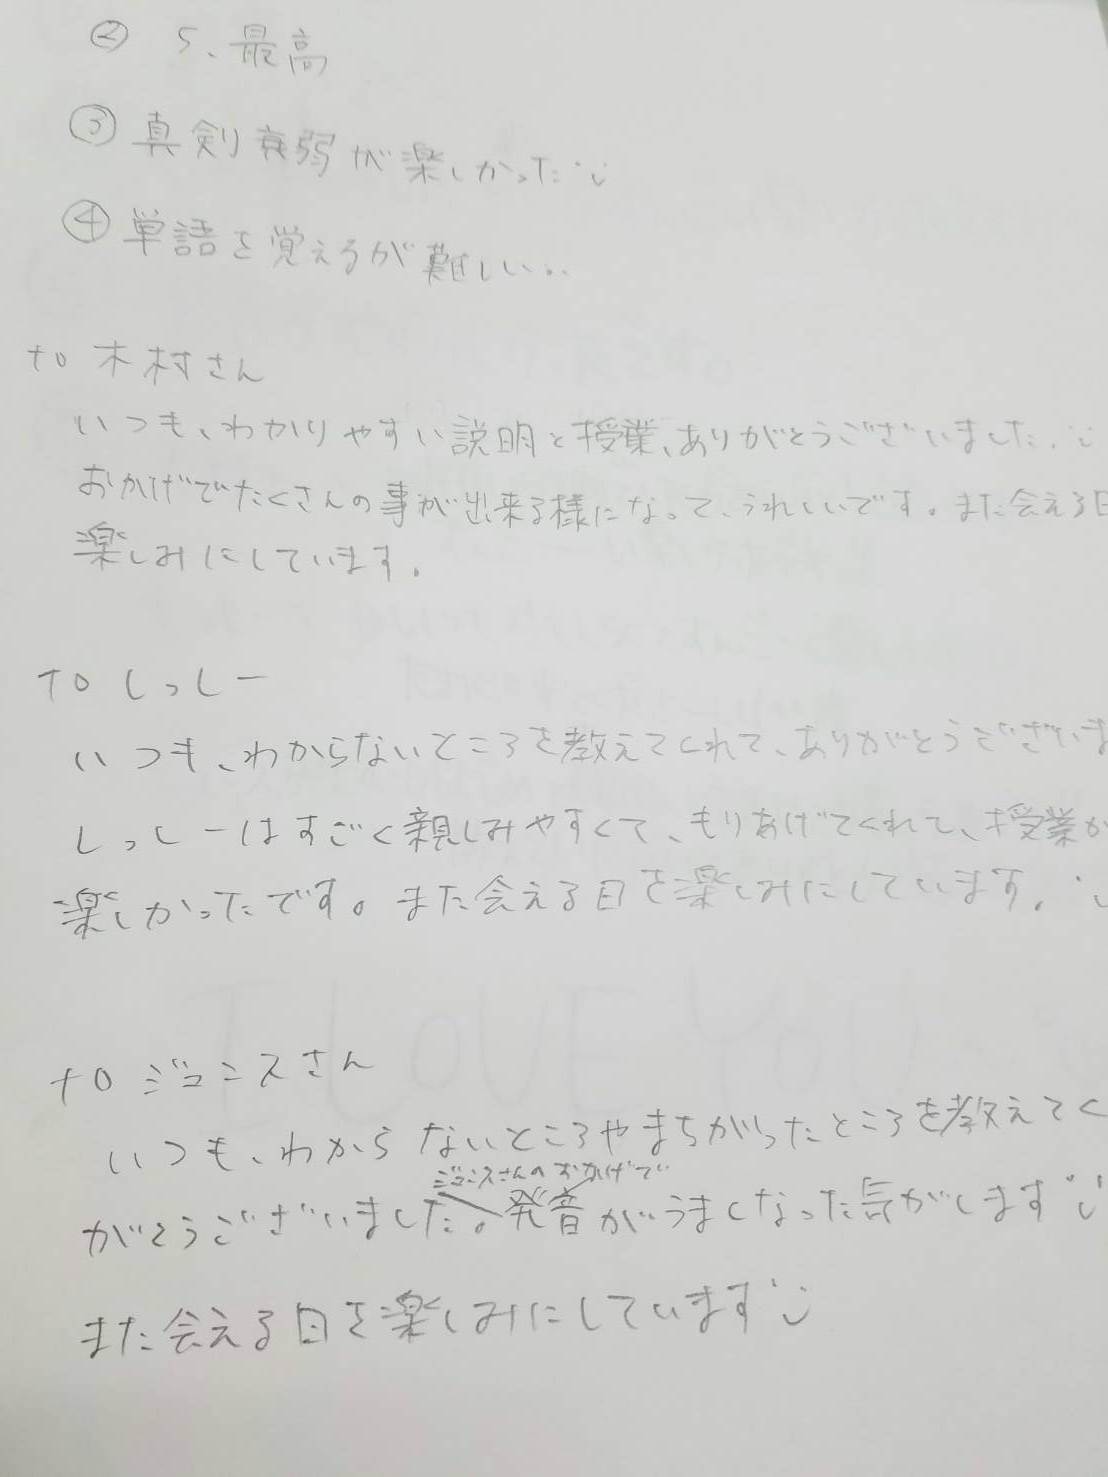 ② 5、最高
③ 真剣衰弱が楽しかった
④ 単語を覚えるが難しい..
to 木村さん
いつも、わかりやすい説明と授業、ありがとうございました.
おかげでたくさんの事が出来る様になって、うれしいです。また会える日
楽しみにしています.
to しっしー
いつも、わからないところを教えてくれて、ありがとうございま
しっしーはすごく親しみやすくて、もりあげてくれて、授業が
楽しかったです。また会える日を楽しみにしています.
to ジョニスさん
いつも、わからないところやまちがったところを教えてく
ジョニスさんのおかげで
がとうございました。発音がうまくなった気がします
また会える日を楽しみにしています